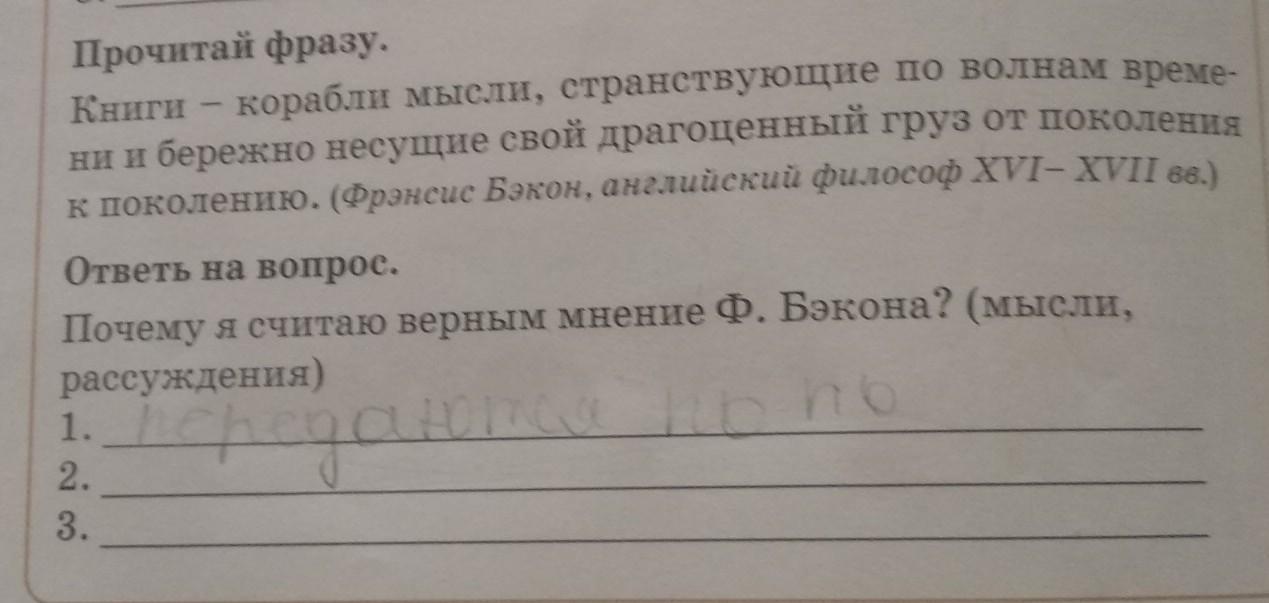 Прочитай фразу.
Книги – корабли мысли, странствующие по волнам време-
ни и бережно несущие свой драгоценный груз от поколения
к поколению. (Фрэнсис Бэкон, английский философ XVI– XVII вв.)
Ответь на вопрос.
Почему я считаю верным мнение Ф. Бэкона? (мысли,
рассуждения)
1. передаются по по
2.
3.